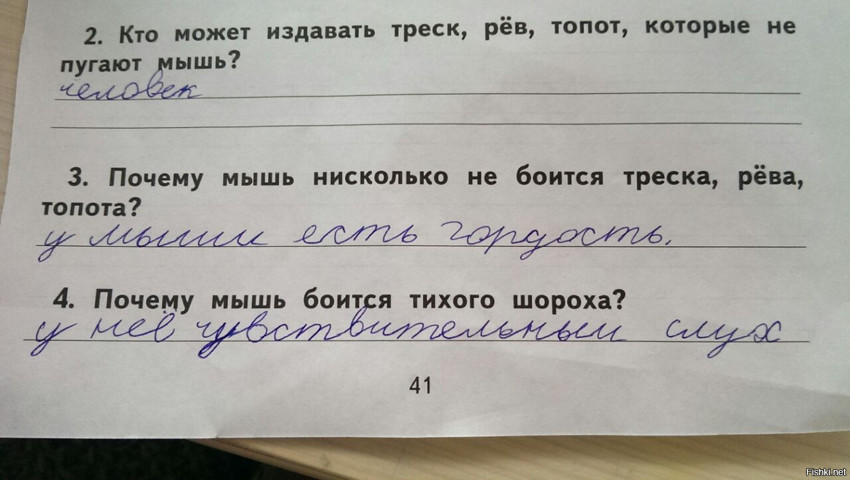 2. Кто может издавать треск, рёв, топот, которые не
пугают мышь?
человек
3. Почему мышь нисколько не боится треска, рёва,
топота?
у мыши есть гордость.
4. Почему мышь боится тихого шороха?
у неё чувствительный слух
41
Fishki.net